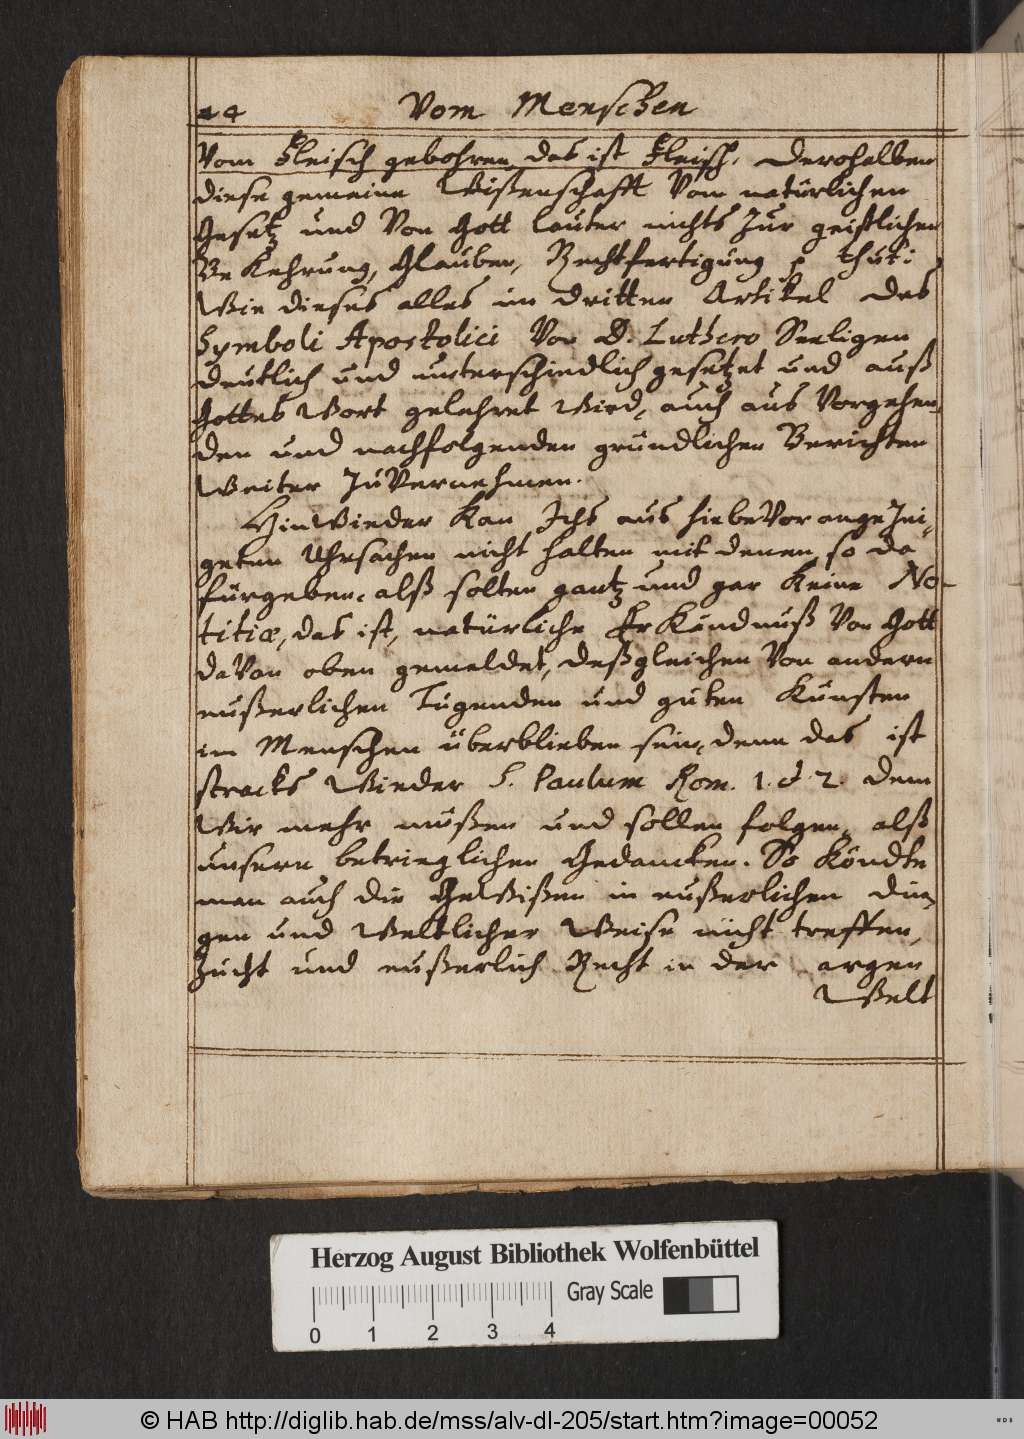 24 Vom Menschen
Vom Fleisch gebohren das ist Fleisch. Derohalben
diese gemeine Wißenschafft Vom natürlichen
Gesetz und Von Gott lauter nichts Zur geistlichen
BeKehrung, Glauben, Rechtfertigung p thut:
Wie dieses alles im dritten Artikel des
Symboli Apostolici Von D. Luthero Seeligen
deutlich und unterschiedlich gesetzet und auß
Gottes Wort gelehret Wird, auch aus Vorgehen,
den und nachfolgenden gründlichen Berichten
Weiter ZuVernehmen.
HinWieder Kan Ichs aus hiebeVor angeZei,
geten Uhrsachen nicht halten mit denen so da
fürgeben, alß solten gantz und gar Keine No-
titiæ, das ist, natürliche ErKändnuß Von Gott
daVon oben gemeldet, deßgleichen Von andern
eußerlichen Tugenden und guten Künsten
im Menschen überblieben sein, denn das ist
stracks Wieder S. Paulum Rom. 1. & 2. dem
Wir mehr müßen und sollen folgen, alß
unsern betrieglichen Gedancken. So Köndte
man auch die GeWißen in eußerlichen din,
gen und Weltlicher Weise nicht treffen,
Zucht und eußerlich Recht in der argen
Welt
Herzog August Bibliothek Wolfenbüttel
Gray Scale
0 1 2 3 4
© HAB http://diglib.hab.de/mss/alv-dl-205/start.htm?image=00052
WDB